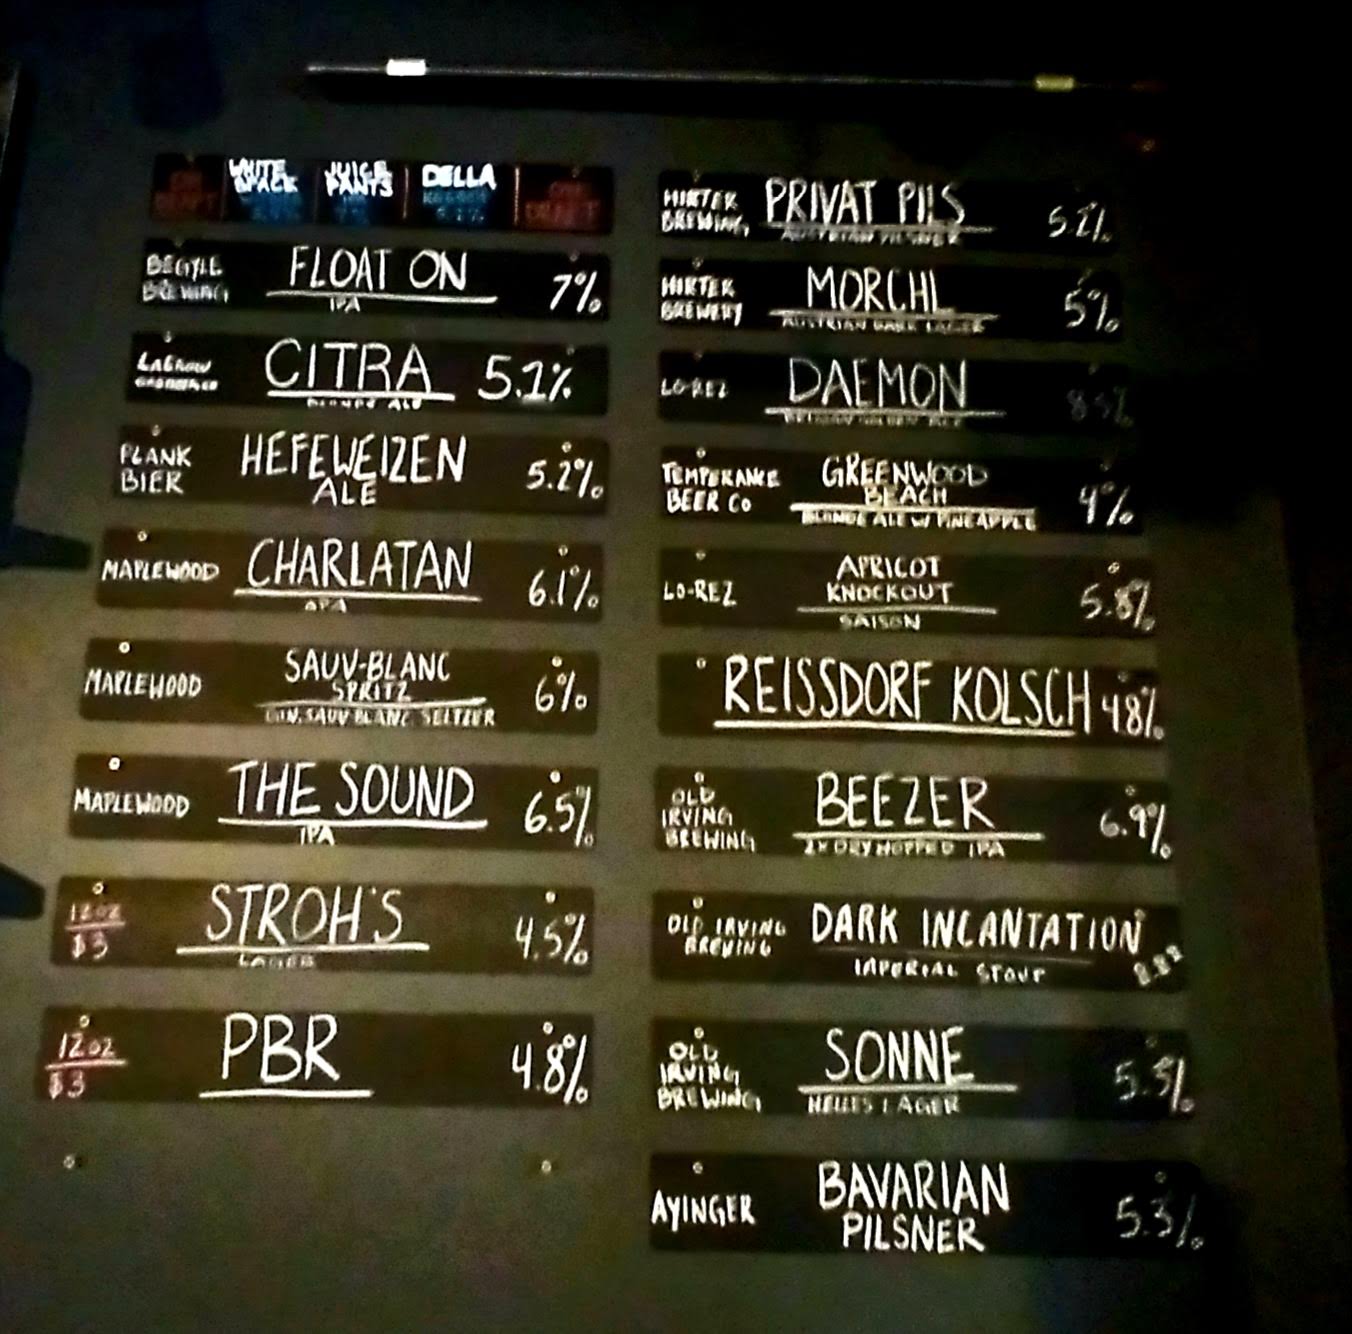 ON DRAFT
WHITE
JUICE PANTS
DELLA
ON DRAFT
BEGYLE BREWING
FLOAT ON
IPA
7%
CITRA
BLONDE ALE
5.1%
PLANK BIER
HEFEWEIZEN
ALE
5.2%
MAPLEWOOD
CHARLATAN
APA
6.1%
MAPLEWOOD
SAUV-BLANC
SPRITZ
SAUV BLANC SELTZER
6%
MAPLEWOOD
THE SOUND
IPA
6.5%
12oz
$3
STROH'S
LAGER
4.5%
12oz
$3
PBR
4.8%
HIRTER BREWING
PRIVAT PILS
AUSTRIAN PILSNER
5.2%
HIRTER BREWERY
MORCHL
AUSTRIAN DARK LAGER
5%
LO-REZ
DAEMON
TEMPERANCE BEER CO
GREENWOOD
BEACH
BLONDE ALE W/ PINEAPPLE
4%
LO-REZ
APRICOT
KNOCKOUT
SAISON
5.8%
REISSDORF KOLSCH
4.8%
OLD IRVING BREWING
BEEZER
2X DRY HOPPED IPA
6.9%
OLD IRVING BREWING
DARK INCANTATION
IMPERIAL STOUT
OLD IRVING BREWING
SONNE
HELLES LAGER
5.3%
AYINGER
BAVARIAN
PILSNER
5.3%